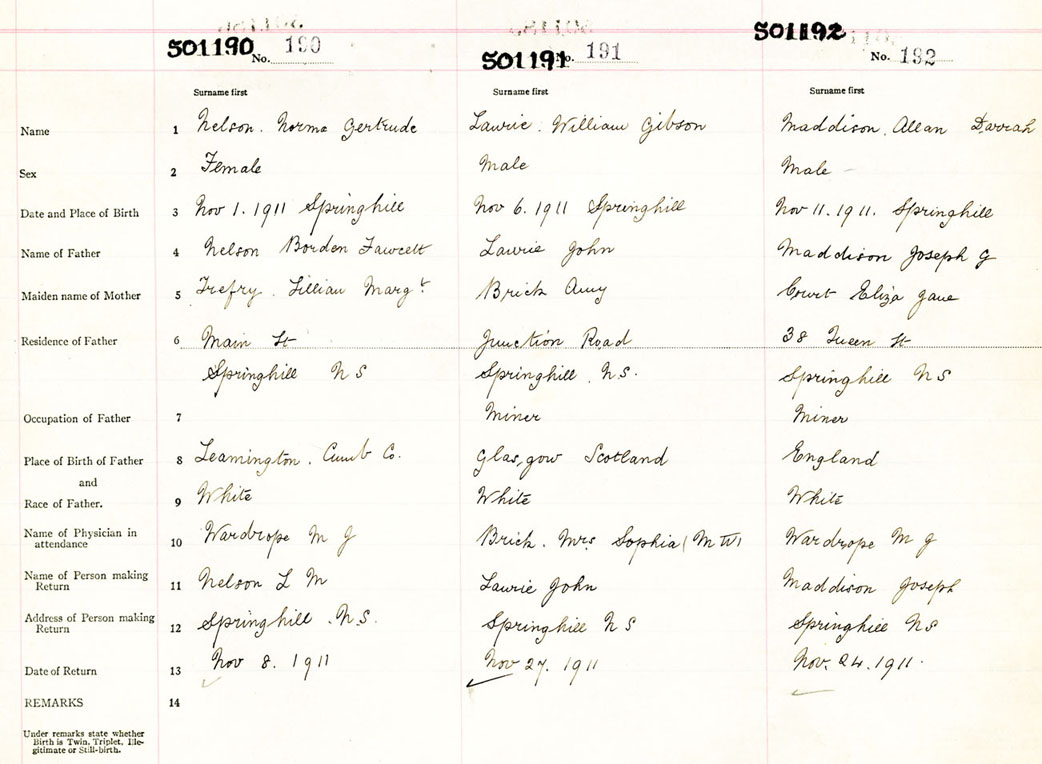 S01190 No. 190 S01191 No. 191 S01192 No. 192
Surname first Surname first Surname first
Name 1 Nelson. Norma Gertrude Lawrie. William Gibson Maddison. Allan Darrah
Sex 2 Female Male Male
Date and Place of Birth 3 Nov 1. 1911 Springhill Nov 6. 1911 Springhill Nov 11. 1911. Springhill
Name of Father 4 Nelson Borden Fawcett Lawrie John Maddison Joseph G
Maiden name of Mother 5 Trefry. Lillian Margt Brick Amy Court Eliza Jane
Residence of Father 6 Main St Junction Road 38 Queen St
Springhill N S Springhill. N.S. Springhill N S
Occupation of Father 7 Miner Miner
Place of Birth of Father 8 Leamington. Cumb Co. Glasgow Scotland England
and
Race of Father. 9 White White White
Name of Physician in attendance 10 Wardrope M J Brick. Mrs Sophia (M W) Wardrope M J
Name of Person making Return 11 Nelson L M Lawrie John Maddison Joseph
Address of Person making Return 12 Springhill. N.S. Springhill N S Springhill N S
Date of Return 13 Nov 8. 1911 Nov 27. 1911 Nov. 24. 1911.
REMARKS 14
Under remarks state whether
Birth is Twin, Triplet, Ille-
gitimate or Still-birth.